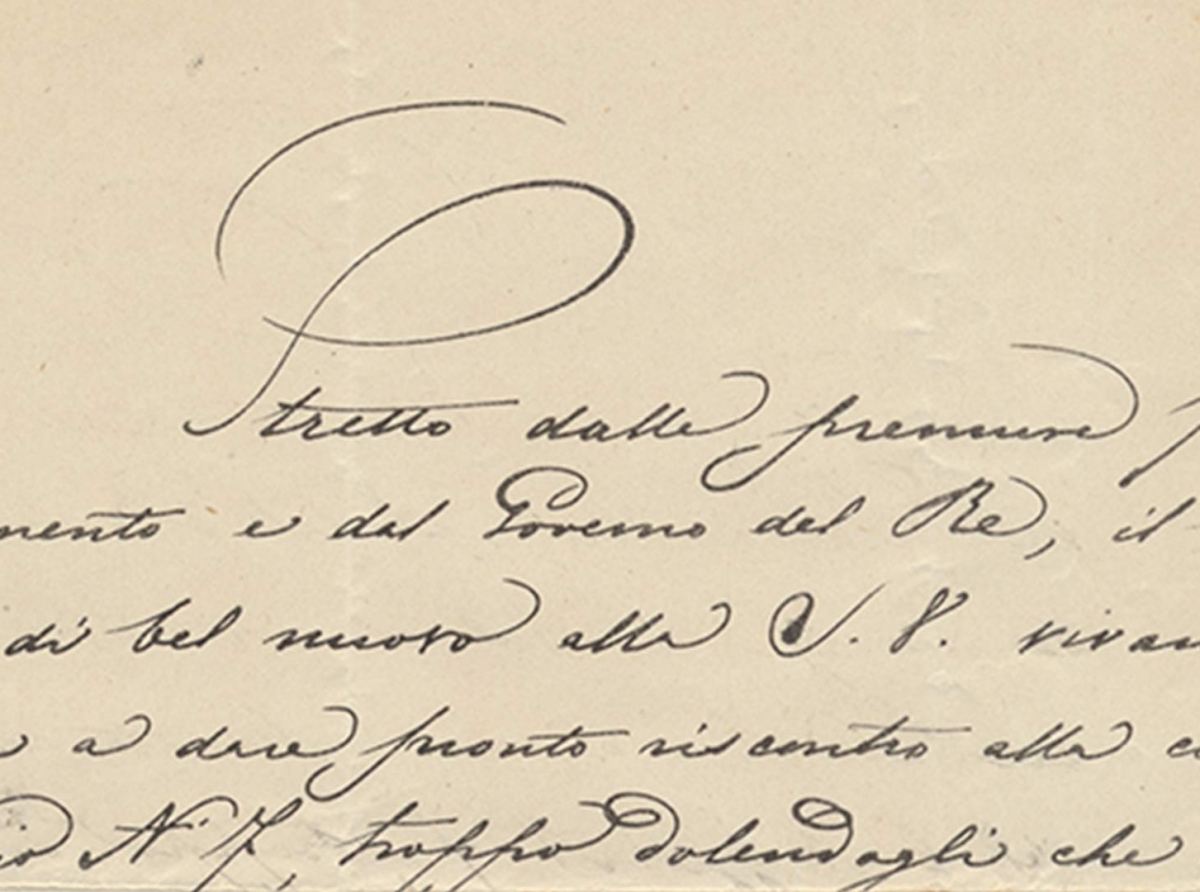 Stretto dalle premure
mento e dal Governo del Re, il
di bel nuovo alla S. V. vivam
a dare pronto riscontro alla
io N° 7, troppo dolendogli che